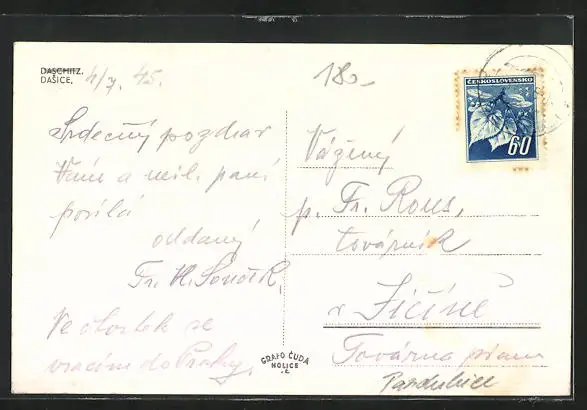 DASCHITZ.
DAŠICE.
4/7. 45.
180-
ČESKOSLOVENSKO
60
Srdečný pozdrav
Vám a mil. paní
posílá
oddaný
Fr. H. Souček.
Ve čtvrtek se
vracím do Prahy.
Vážený
p. Fr. Rous,
továrník
v Jičíně
Továrna
Pardubice
GRAFO ČUDA
HOLICE